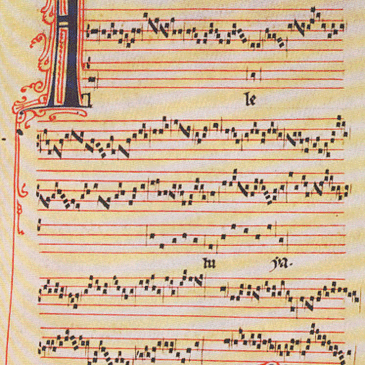 Al le
lu ya.